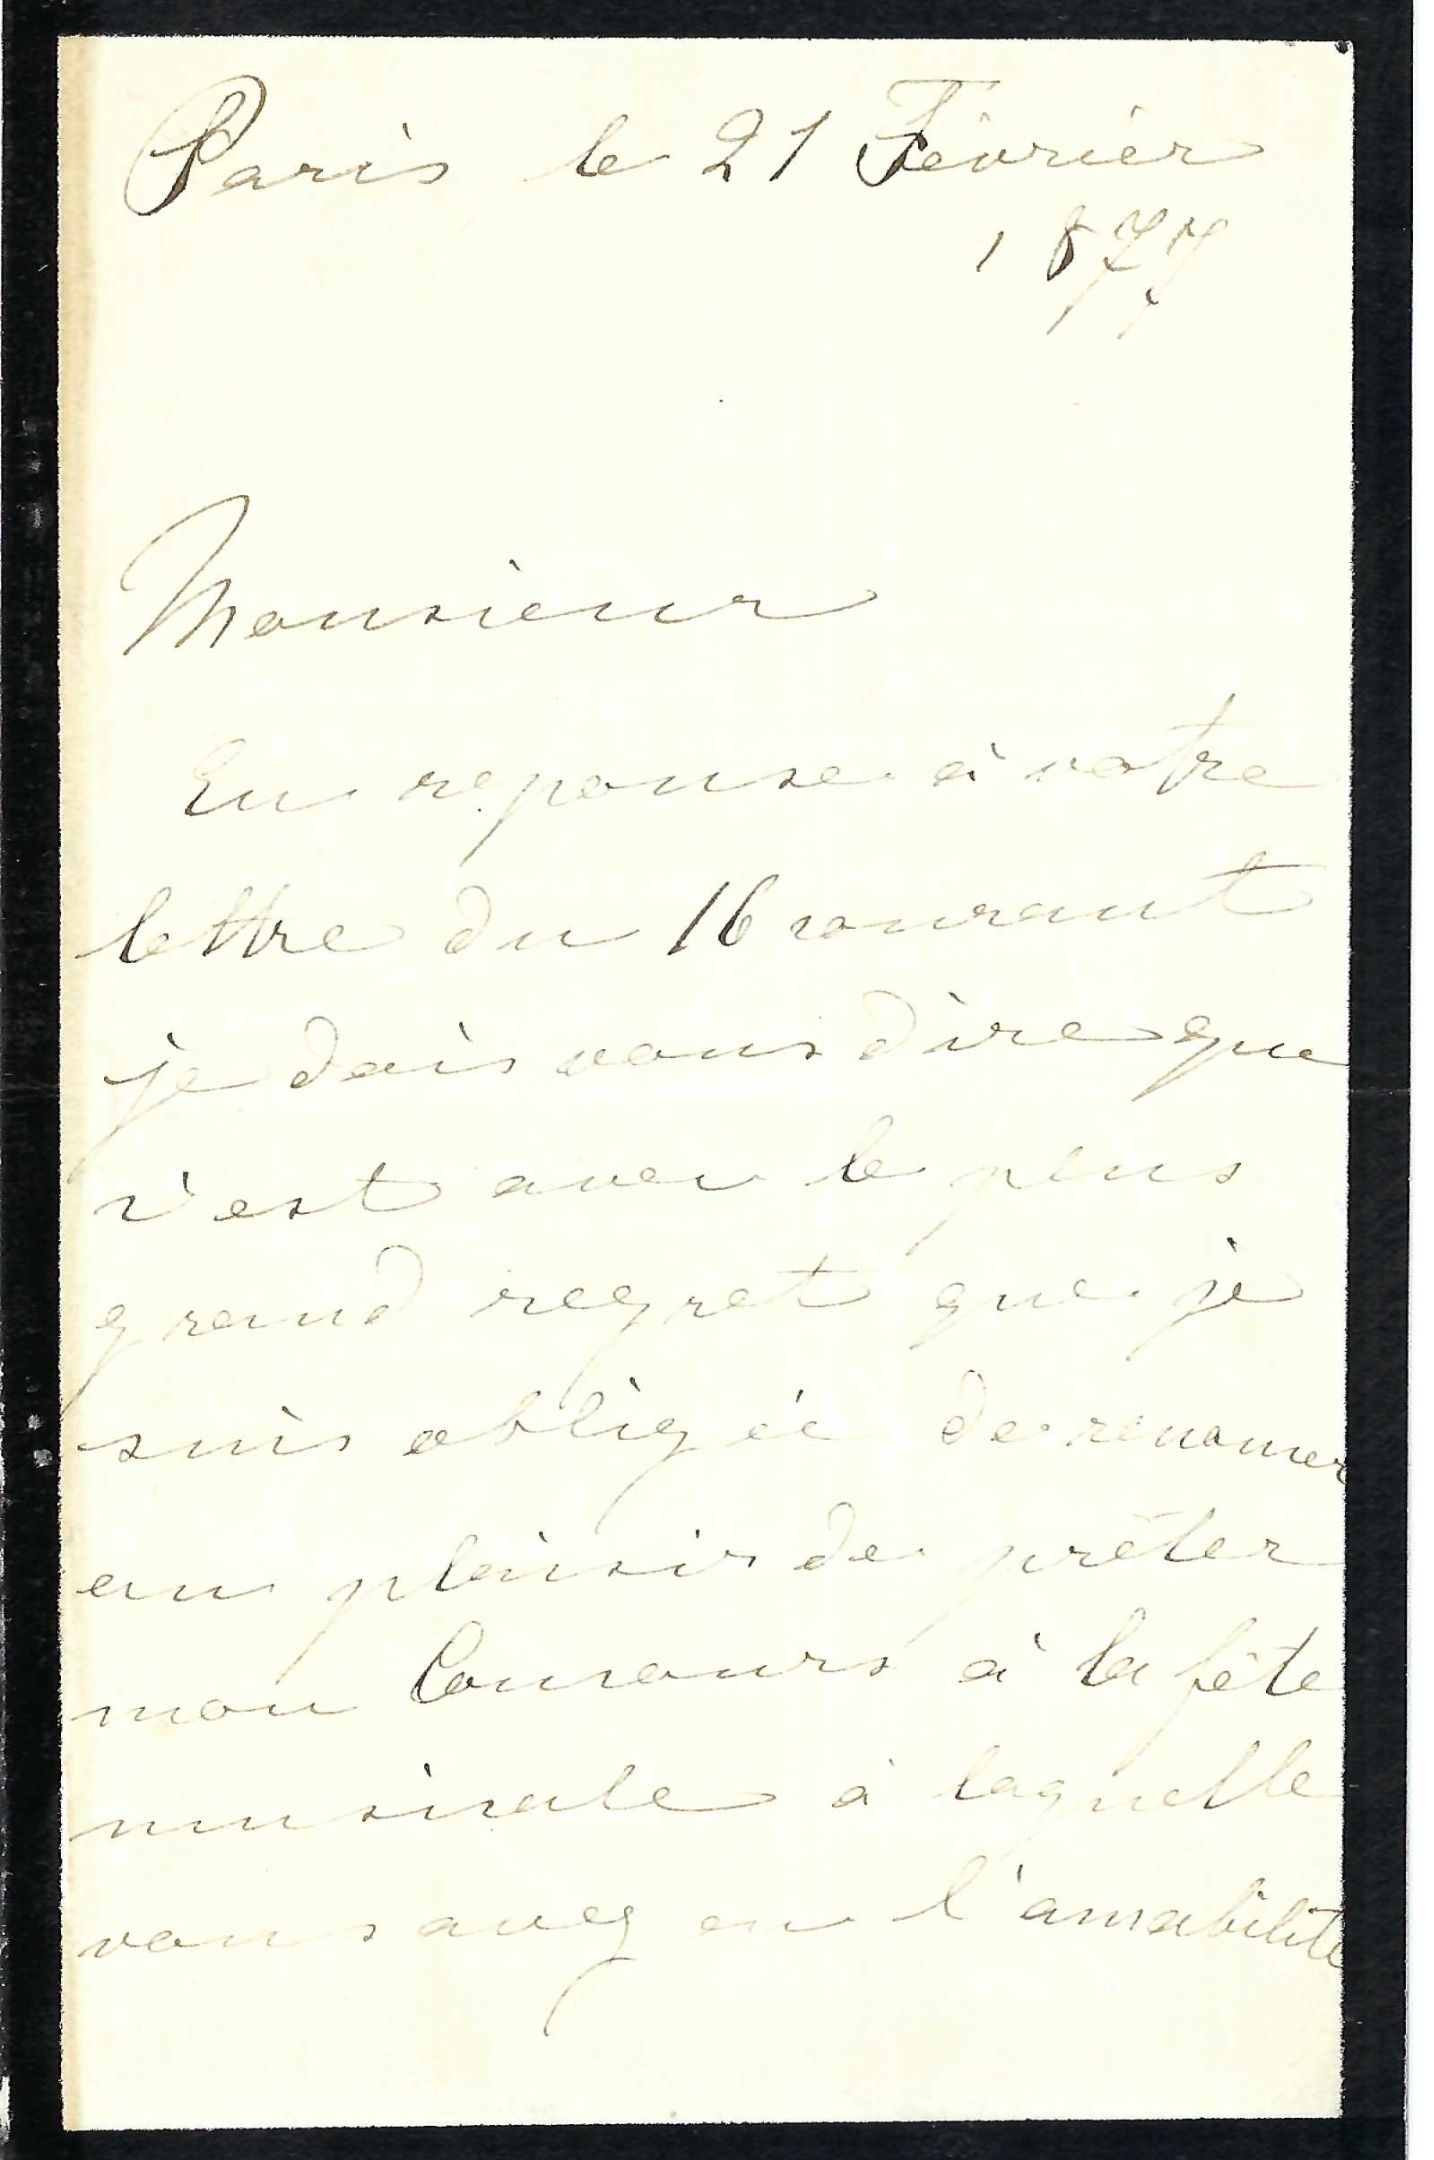 Paris le 21 Février
1877
Monsieur
En reponse à votre
lettre du 16 courant
je dois vous dire que
c'est avec le plus
grand regret que je
suis obligée de renoncer
au plaisir de prêter
mon Concours à la fête
musicale à laquelle
vous avez eu l'amabilité